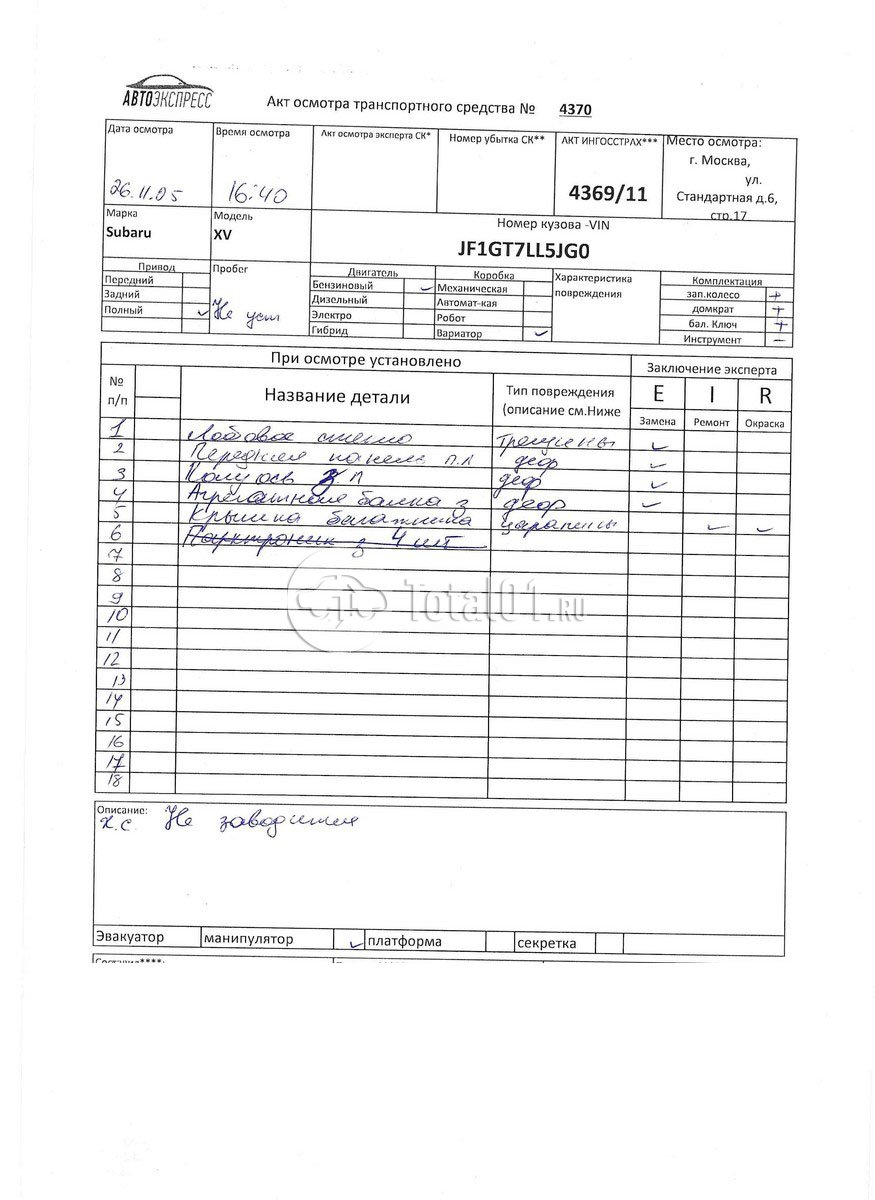 АВТОЭКСПРЕСС
Акт осмотра транспортного средства № 4370
Дата осмотра
Время осмотра
Акт осмотра эксперта СК*
Номер убытка СК**
АКТ ИНГОССТРАХ***
Место осмотра:
г. Москва,
ул.
Стандартная д.6,
стр.17
26.11.05
16:40
4369/11
Марка
Subaru
Модель
XV
Номер кузова -VIN
JF1GT7LL5JG0
Привод
Передний
Задний
Полный ✓
Пробег
Не уст
Двигатель
Бензиновый ✓
Дизельный
Электро
Гибрид
Коробка
Механическая
Автомат-кая
Робот
Вариатор ✓
Характеристика
повреждения
Комплектация
зап.колесо +
домкрат +
бал. Ключ +
Инструмент –
При осмотре установлено
Заключение эксперта
№
п/п
Название детали
Тип повреждения
(описание см.Ниже
E I R
Замена Ремонт Окраска
1 Лобовое стекло трещины ✓
2 Передняя панель п.л деф ✓
3 Полуось з.л деф ✓
4 Агрегатная балка з деф ✓
5 Крышка багажника царапины ✓ ✓
6 Парктроник з 4 шт
7
8
9
10
11
12
13
14
15
16
17
18
Total01.RU
Описание:
Х.С. Не заводится
Эвакуатор манипулятор ✓ платформа секретка